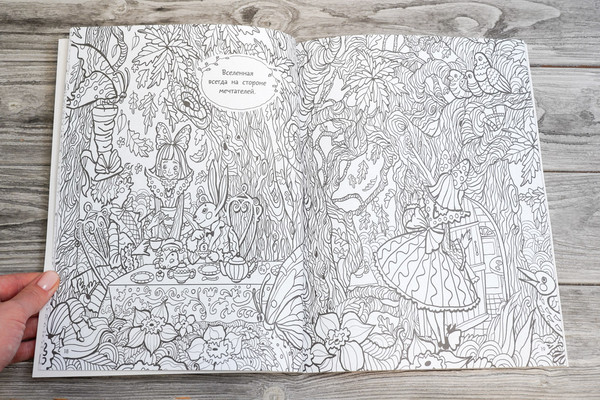 Вселенная
всегда на стороне
мечтателей.
18